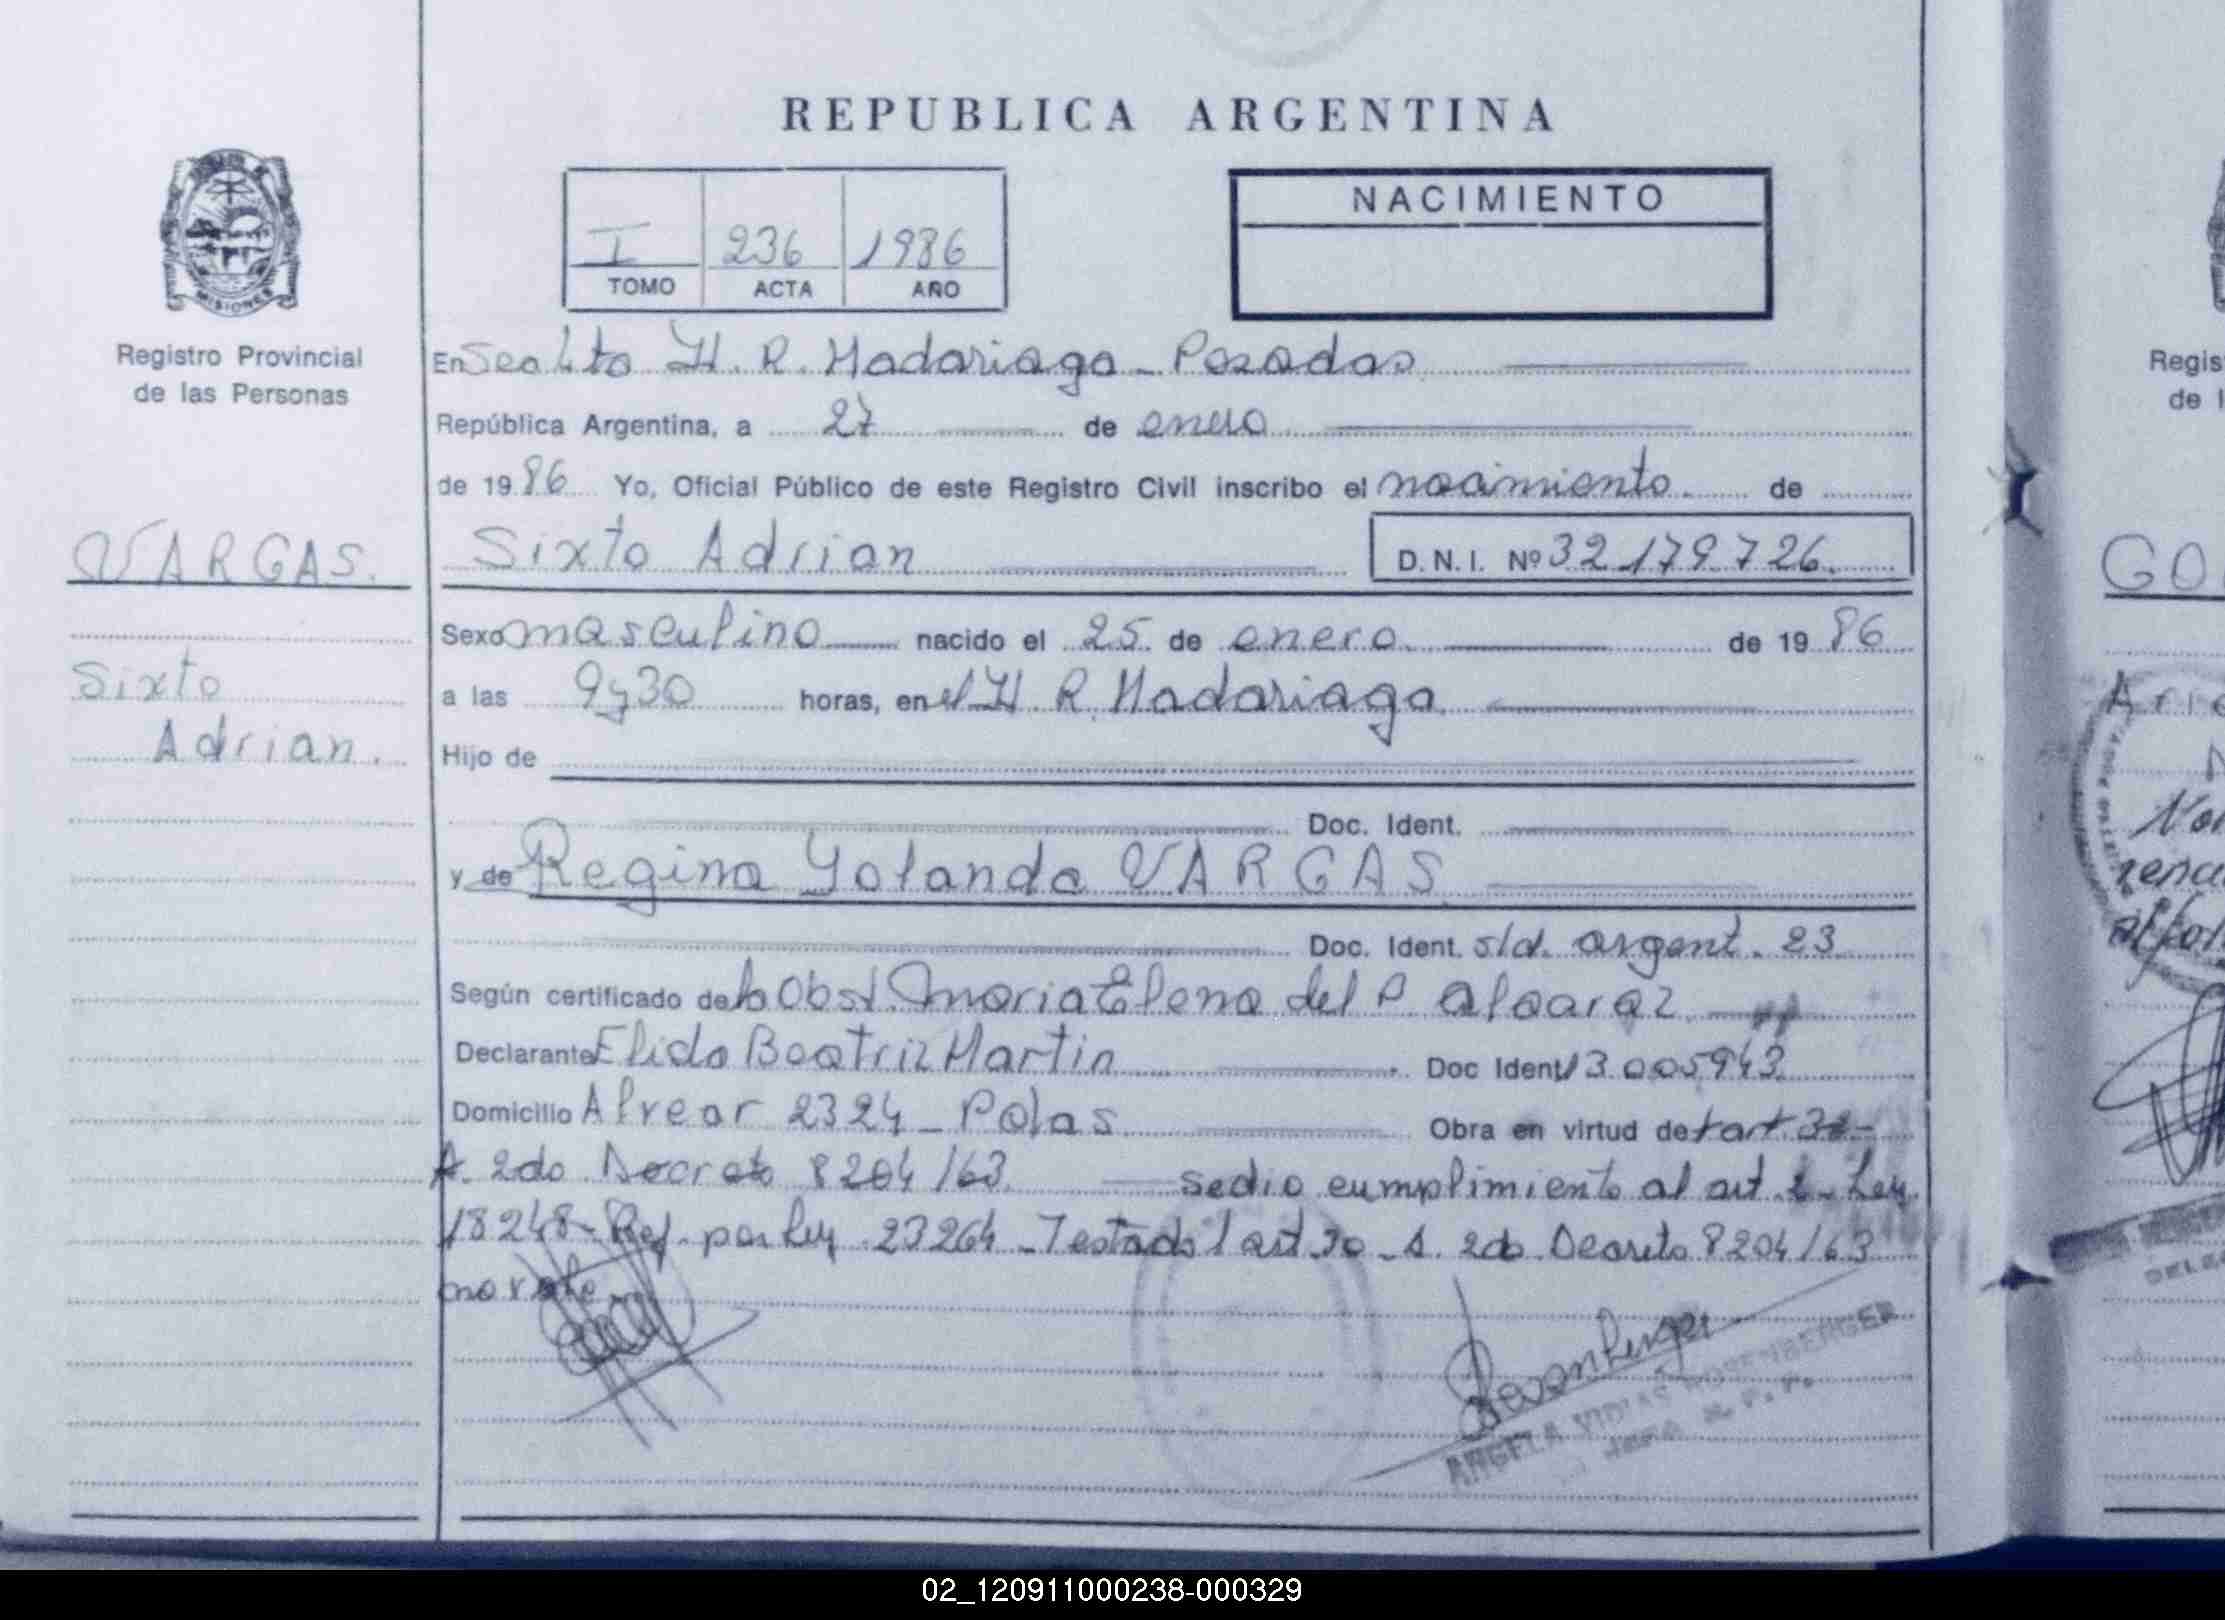 REPUBLICA ARGENTINA
MISIONES
Registro Provincial
de las Personas
I 236 1986
TOMO ACTA AÑO
NACIMIENTO
En H. R. Madariaga - Posadas
República Argentina, a 27 de enero
de 1986 Yo, Oficial Público de este Registro Civil inscribo el nacimiento de
VARGAS.
Sixto Adrian D.N.I. Nº 32.179.726.
Sexo masculino nacido el 25 de enero de 1986
Sixto
Adrian.
a las 9 y 30 horas, en el H. R. Madariaga
Hijo de
Doc. Ident.
y de Regina Yolanda VARGAS
Doc. Ident. s/d. argent. 23
Según certificado de la Obst. Maria Elena del P. Alcaraz
Declarante Elida Beatriz Martin Doc Ident 13.005943
Domicilio Alvear 2324 - Pdas Obra en virtud de art. 30-
A. 2do Decreto 8204/63 se dio cumplimiento al art. Ley
18248 - Ref. por Ley 23264 - Testado art 30 - A. 2do Decreto 8204/63
no vale
Rosenberger
ANGELA ROSENBERGER
Regis
de l
GO
02_120911000238-000329